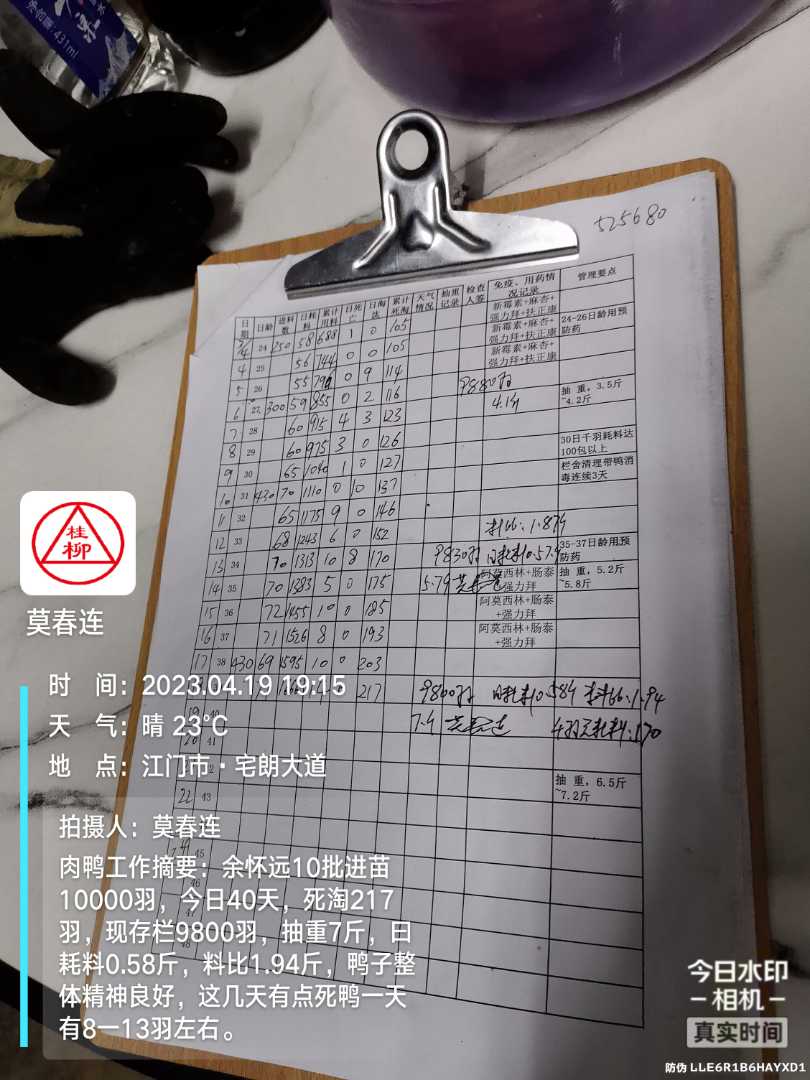 431ml
525680
日期 日龄 进料数 日耗料 累计用料 日死亡 日淘汰 累计死淘 天气情况 抽重记录 检查人签 免疫、用药情况记录 管理要点
24 250 58 688 1 0 105 新霉素+麻杏+强力拜+扶正康 24-26日龄用预防药
4 25 56 744 0 0 105 新霉素+麻杏+强力拜+扶正康
5 26 55 799 0 9 114 新霉素+麻杏+强力拜+扶正康
6 27 300 59 855 0 2 116 9880羽 抽重，3.5斤~4.2斤
7 28 60 915 4 3 123 4.1斤
8 29 60 975 3 0 126 30日千羽耗料达100包以上
9 30 65 1040 1 0 127 栏舍清理带鸭消毒连续3天
10 31 430 70 1110 0 10 137
11 32 65 1175 9 0 146
12 33 68 1243 6 0 152 料比:1.87斤 35-37日龄用预防药
13 34 70 1313 10 8 170 9830羽 日耗料0.57斤
14 35 70 1383 5 0 175 5.7斤 阿莫西林+肠泰+强力拜 抽重，5.2斤~5.8斤
15 36 72 1455 10 0 185 阿莫西林+肠泰+强力拜
16 37 71 1526 8 0 193 阿莫西林+肠泰+强力拜
17 38 430 69 1595 10 0 203
217 9800羽 日耗料0.58斤 料比:1.94
19 40 7斤
20 41
22 43 抽重，6.5斤~7.2斤
45
46
47
48
桂柳
莫春连
时 间：2023.04.19 19:15
天 气：晴 23℃
地 点：江门市·宅朗大道
拍摄人：莫春连
肉鸭工作摘要：余怀远10批进苗
10000羽，今日40天，死淘217
羽，现存栏9800羽，抽重7斤，日
耗料0.58斤，料比1.94斤，鸭子整
体精神良好，这几天有点死鸭一天
有8一13羽左右。
今日水印
-相机-
真实时间
防伪 LLE6R1B6HAYXD1